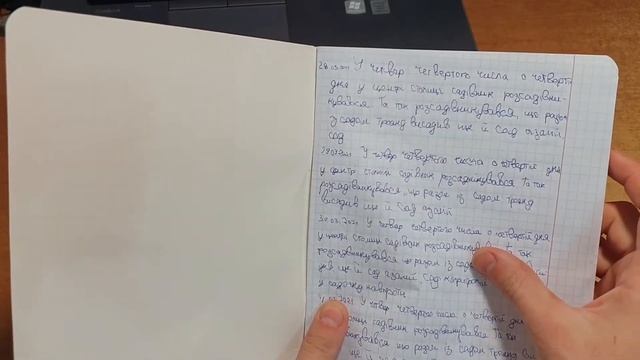 28.03.2021 У четвер четвертого числа о четвертій
дня у центрі столиці садівник розсадівни-
кувався Та так розсадівникувався, що разом
із садом троянд висадив ще й сад азалій
сад
29.03.2021 У четвер четвертого числа о четвертій дня
у центрі столиці садівник розсадівникувався Та так
розсадівникувався, що разом із садом троянд
висадив ще й сад азалій
30.03.2021 У четвер четвертого числа о четвертій дня
у центрі столиці садівник так
розсадівникувався що разом із
ще й сад азалій, сад
у садочку навпроти
2021 У четвер четвертого числа о четвертій дня
столиці садівник розсадівникувався Та так
що разом із садом троянд
ще й